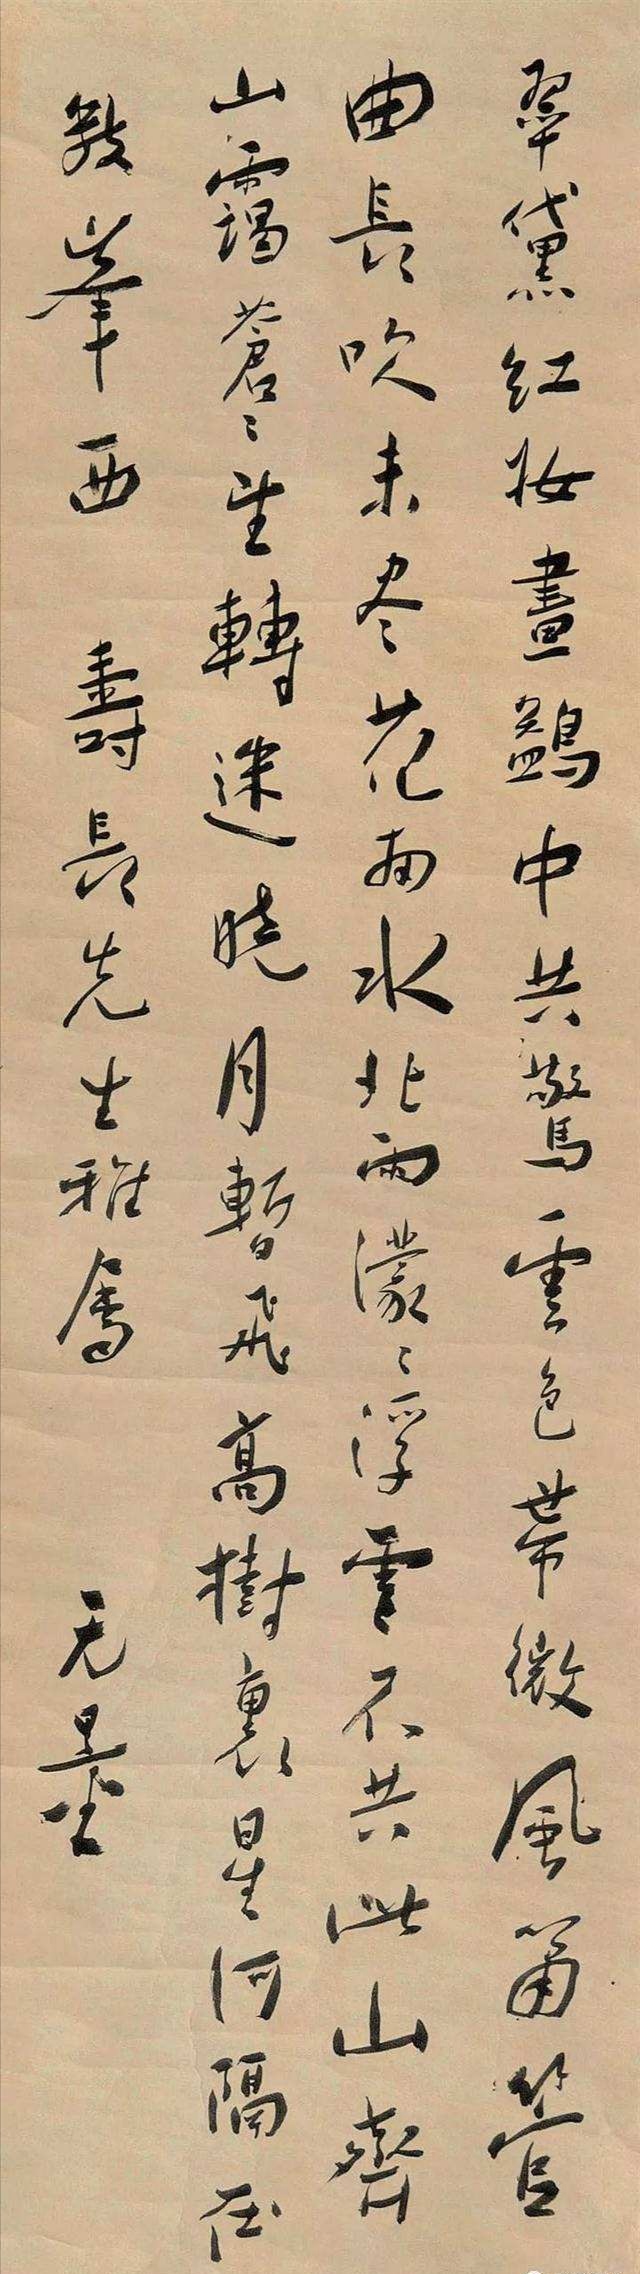 翠黛紅妝畫鷁中共驚雲色帶微風簫管
曲長吹未尽花南水北雨濛〻浮雲不共此山齊
山靄蒼〻望轉迷曉月暫飛高樹裏星河隔在
數峯西 壽長先生雅屬 无量